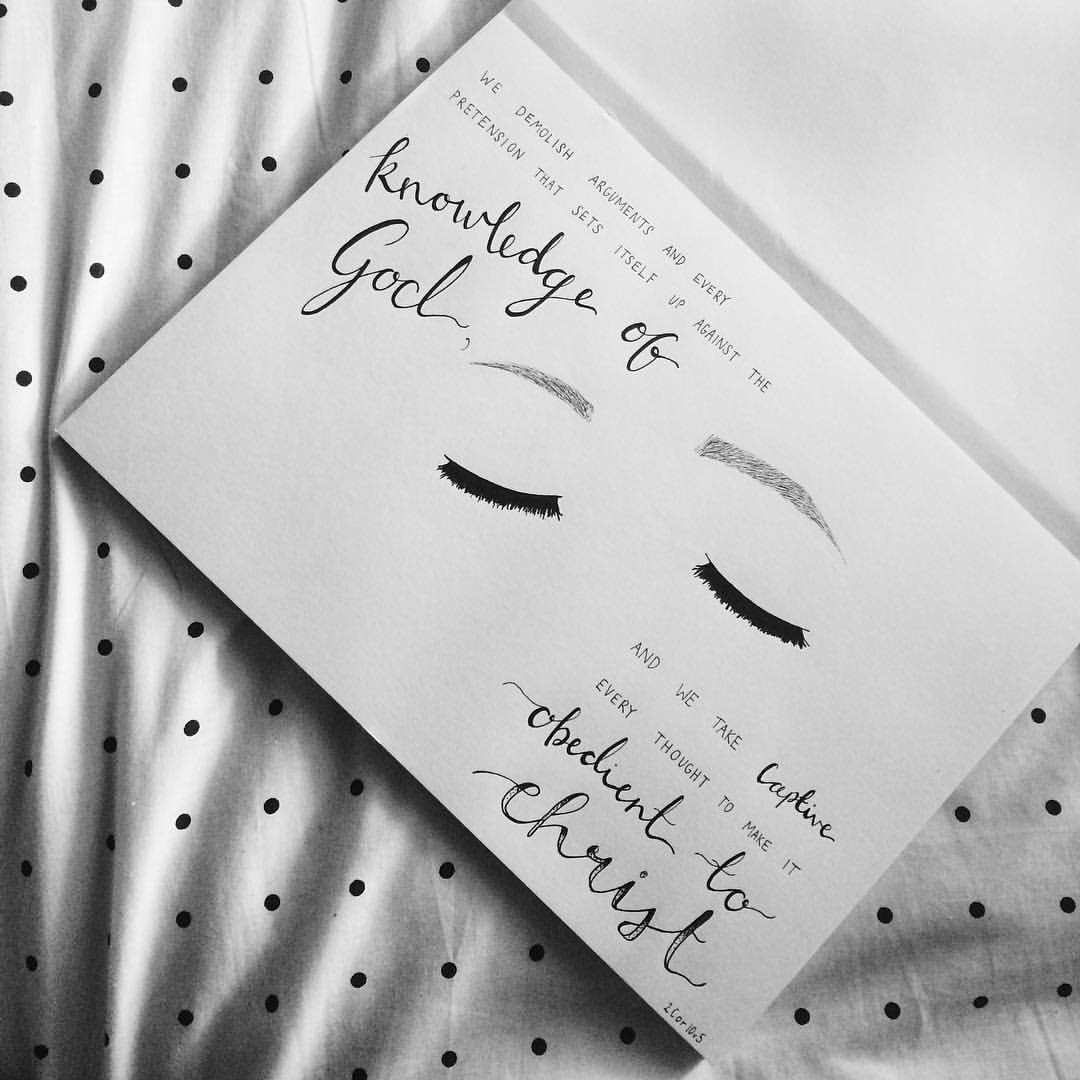 WE DEMOLISH ARGUMENTS AND EVERY
PRETENSION THAT SETS ITSELF UP AGAINST THE
knowledge of
God,
AND WE TAKE captive
EVERY THOUGHT TO MAKE IT
obedient to
christ
2Cor10v5